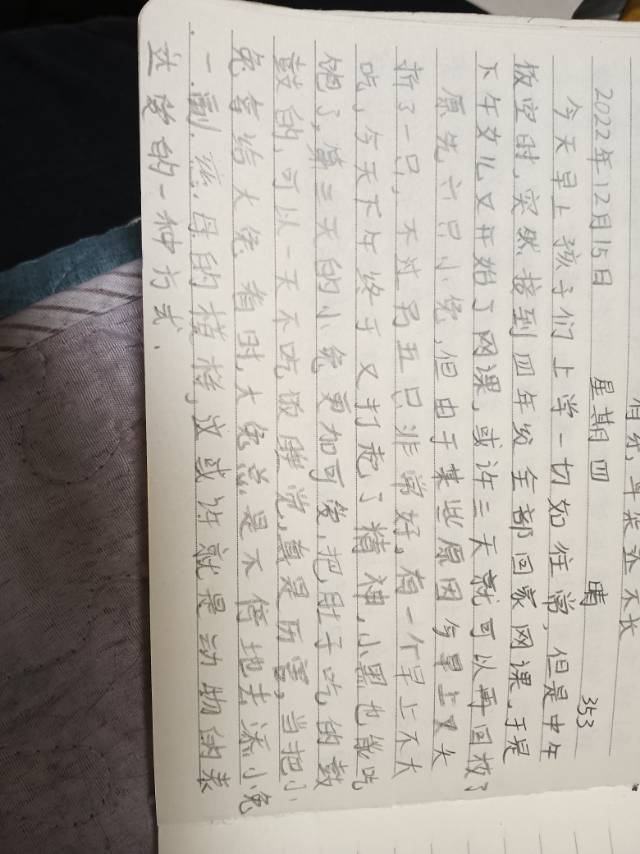 2022年12月15日 星期四 晴 353
今天早上孩子们上学一切如往常，但是中午
放空时，突然接到四年级全部回家网课，于是
下午女儿又开始了网课，或许三天就可以再回校了
原先六只小兔，但由于某些原因今早上又失
折了一只，不过另五只非常好，有一个早上不大
吃，今天下午终于又打起了精神，小黑也能吃
饱了，第三天的小兔更加可爱，把肚子吃的鼓
鼓的，可以一天不吃，吸睡觉，真是厉害，当把小
兔拿给大兔看时，大兔总是不停地去添小兔
一副慈母的模样，这或许就是动物的表
达爱的一种方式.